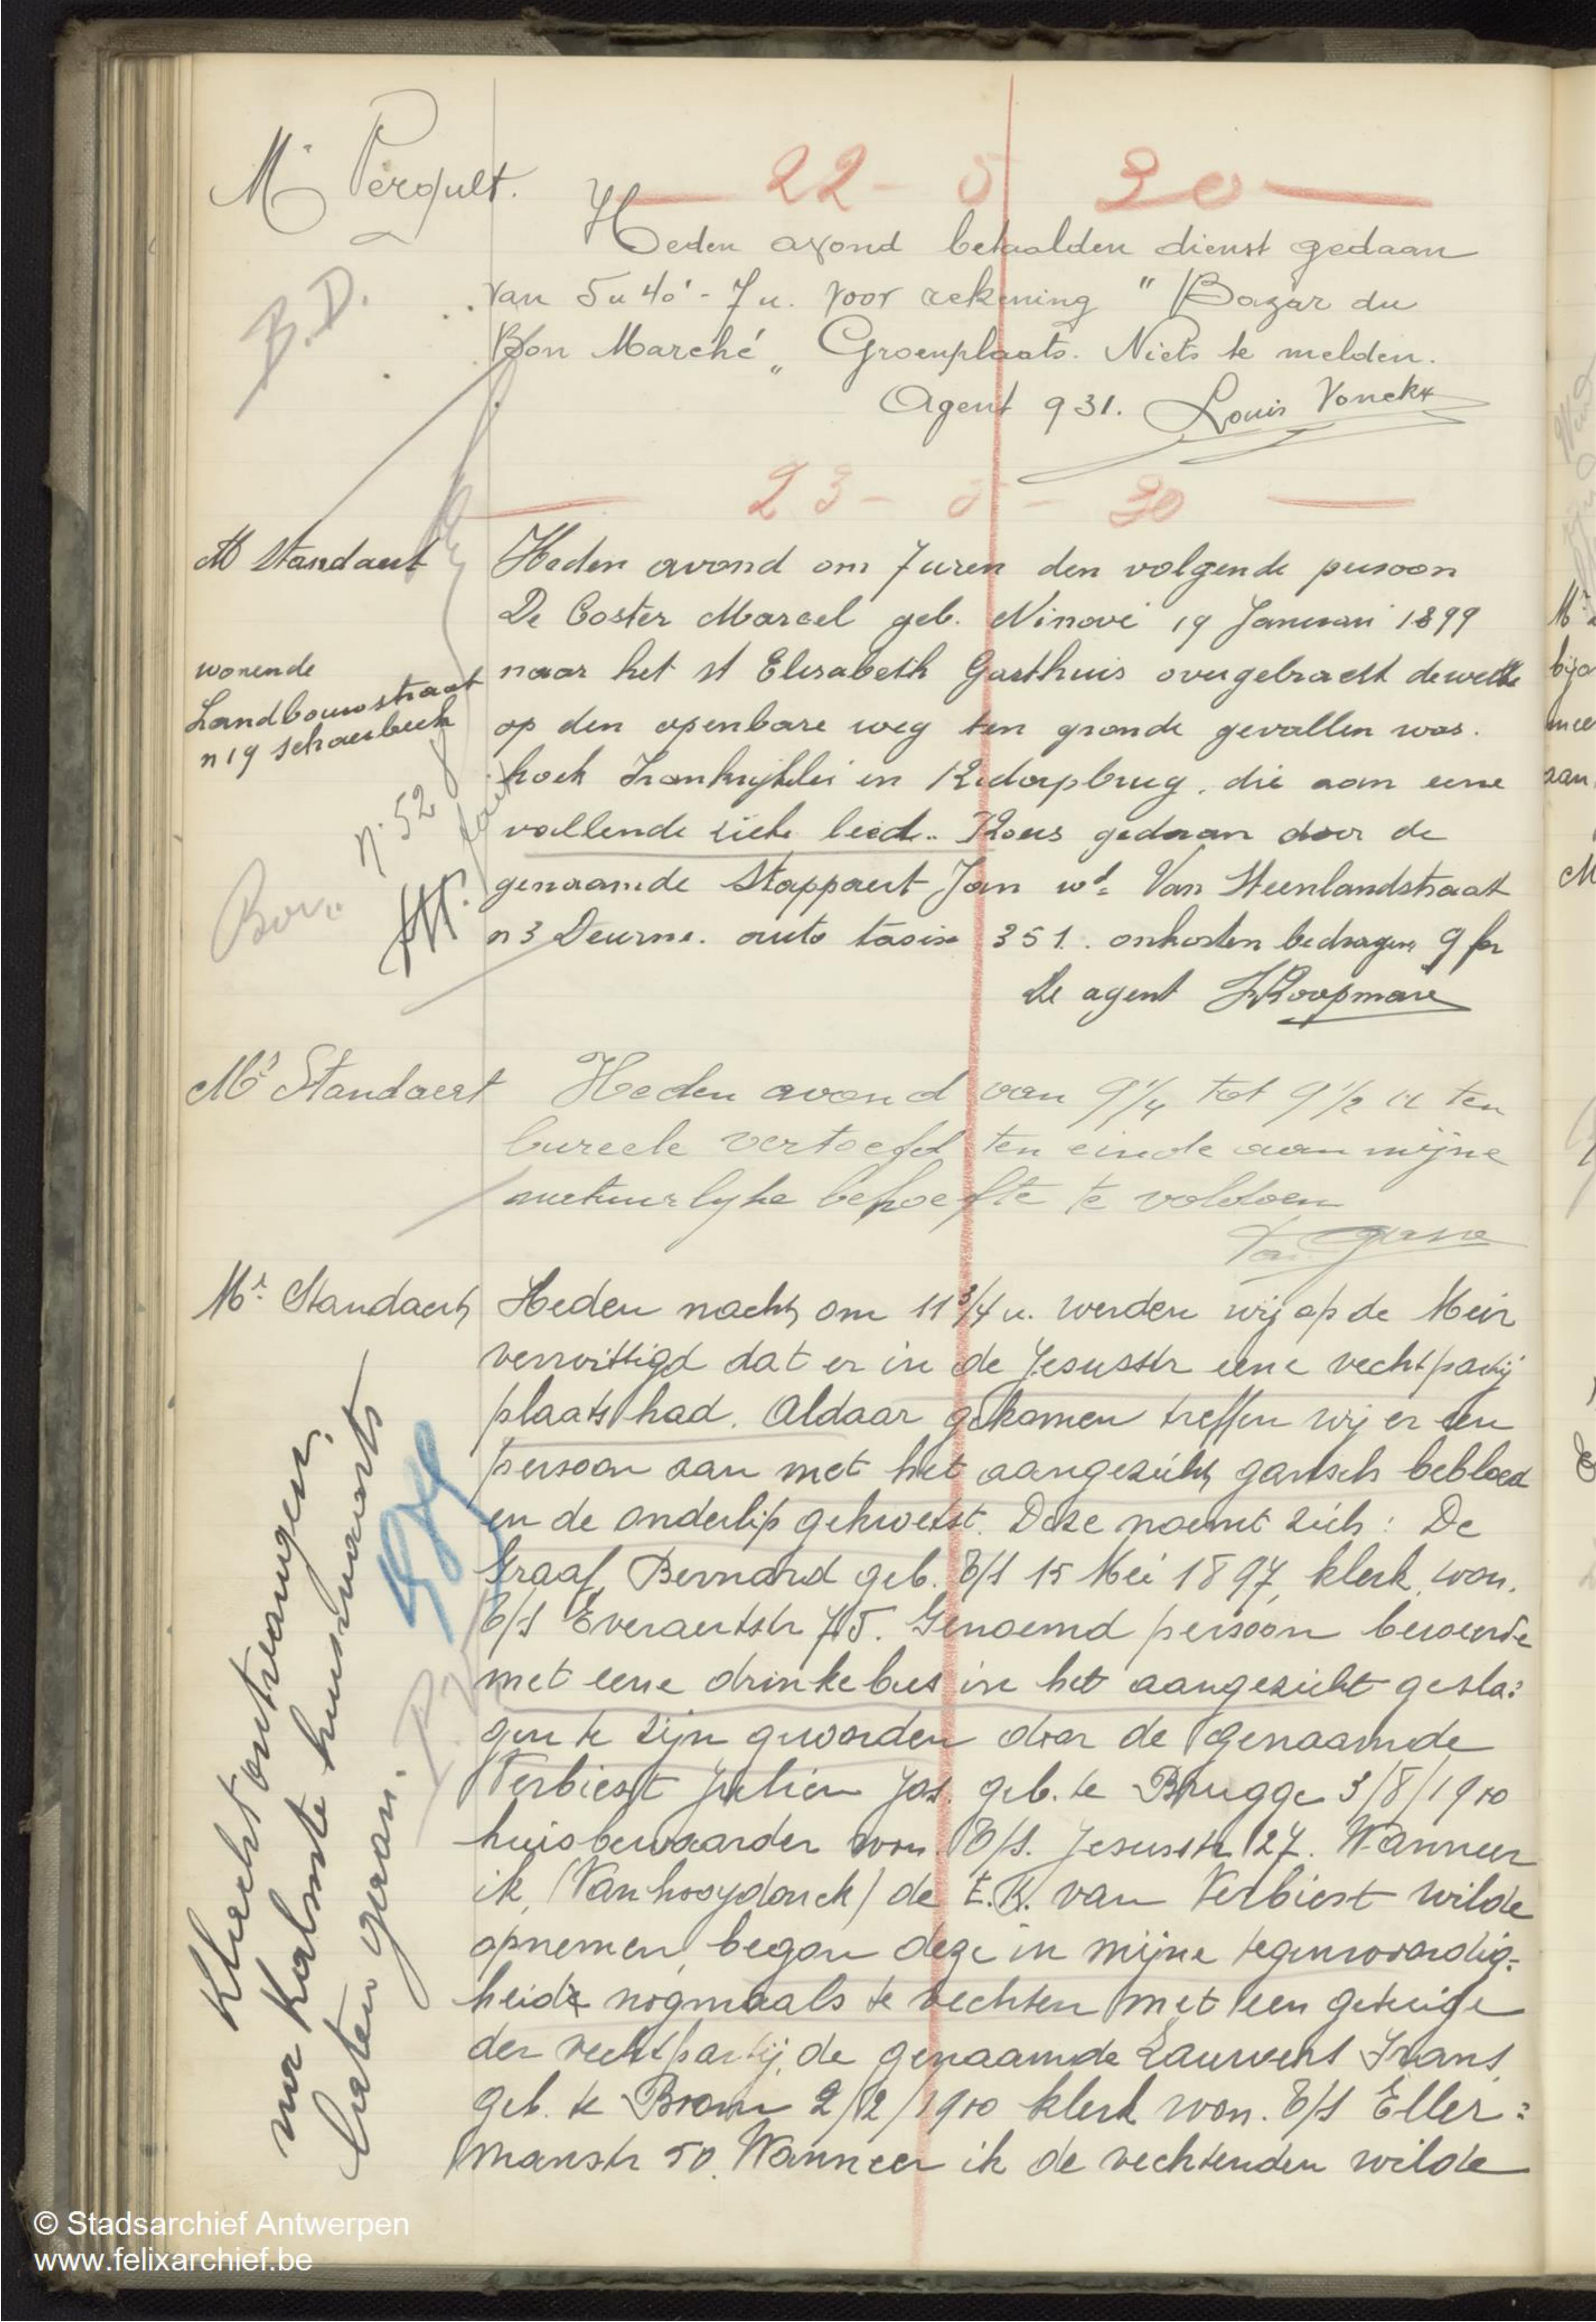 Mr Perqult.
22 - 5 30
Heden avond betaalden dienst gedaan
B.D.
van 5 u 40' - 7 u. voor rekening " Bazar du
Bon Marché „ Groenplaats. Niets te melden.
Agent 931. Louis Vonckx
23 - 5 - 30
Mr Standaert
Heden avond om 7 uren den volgende persoon
De Coster Marcel geb. Ninove 19 Januari 1899
wonende
Landbouwstraat
n 19 Schaerbeek
naar het st Elisabeth Gasthuis overgebracht dewelke
op den openbare weg ten gronde gevallen was.
hoek Frankrijklei en Kidorpbrug. die aan eene
n. 52
vallende ziekte leed.. Koers gedaan door de
Bov.
genaamde Stappaert Jan wd. Van Steenlandstraat
n 3 Deurne. auto taxis 351. onkosten bedragen 9 fr
De agent Koopman
Mr Standaert
Heden avond van 9 1/4 tot 9 1/2 u ten
bureele vertoefd ten einde aan mijne
natuurlyke behoefte te voldoen
Mr. Standaert
Heden nacht om 11 3/4 u. werden wij op de Meir
verwittigd dat er in de Jesusstr eene vechtpartij
plaats had. Aldaar gekomen treffen wij er een
persoon aan met het aangezicht gansch bebloed
en de onderlip gekwetst. Deze noemt zich : De
Graaf Bernard geb. t/s 15 Mei 1897, klerk, won.
t/s Everaertstr 75. Genoemd persoon beweerde
met eene drinkebus in het aangezicht gesla:
gen te zijn geworden door de genaamde
Verbiest Julien Jos. geb. te Brugge 3/8/1900
huisbewaarder won. t/s. Jesusstr 27. Wanneer
ik, (Vanhooydonck) de E.K. van Verbiest wilde
opnemen, begon deze in mijne tegenwoordig:
heid nogmaals te vechten met een getuige
der vechtpartij, de genaamde Lauwers Frans,
geb. te 2/12/1900 klerk won. t/s Eller:
manstr 50. Wanneer ik de vechtenden wilde
Klacht ontvangen,
na kalmte huiswaarts
laten gaan.
© Stadsarchief Antwerpen
www.felixarchief.be